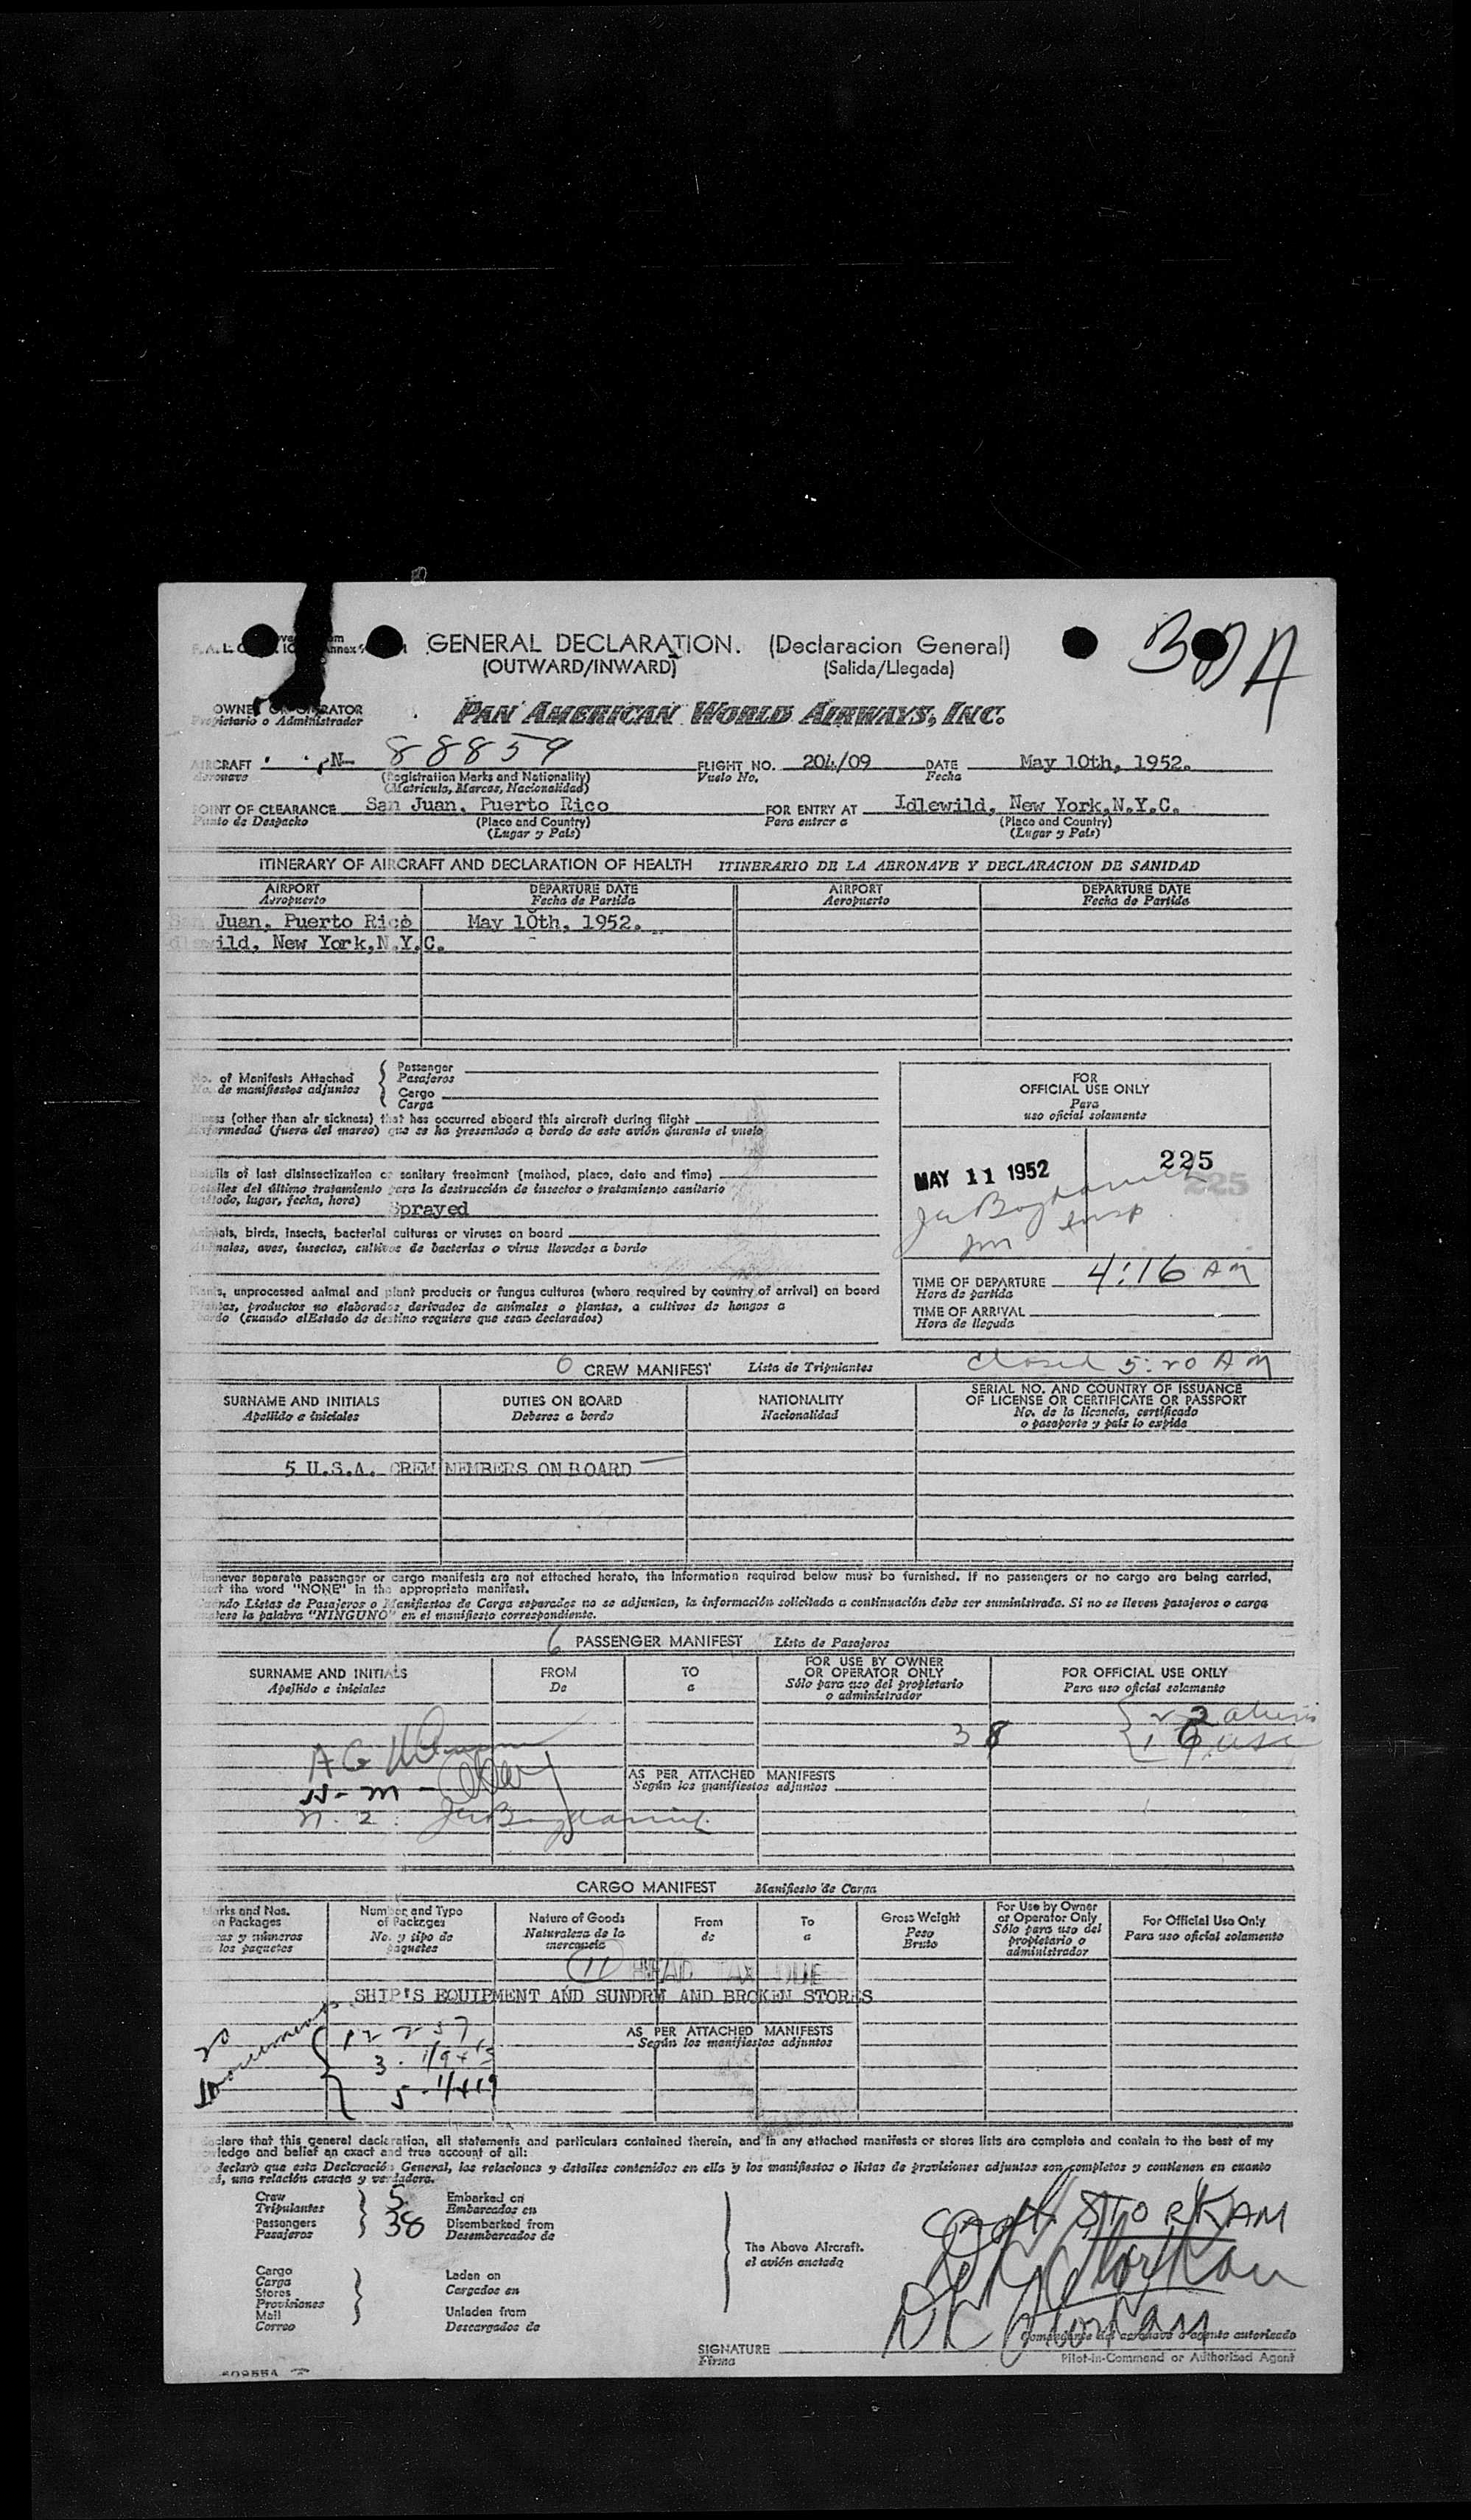 GENERAL DECLARATION. (Declaracion General)
(OUTWARD/INWARD) (Salida/Llegada)
30A
OWNER OR OPERATOR
Propietario o Administrador
PAN AMERICAN WORLD AIRWAYS, INC.
AIRCRAFT N- 88859 FLIGHT NO. 204/09 DATE May 10th, 1952.
Aeronave (Registration Marks and Nationality) Vuelo No. Fecha
(Matricula, Marcas, Nacionalidad)
POINT OF CLEARANCE San Juan, Puerto Rico FOR ENTRY AT Idlewild, New York,N.Y.C.
Punto de Despacho (Place and Country) Para entrar a (Place and Country)
(Lugar y País) (Lugar y País)
ITINERARY OF AIRCRAFT AND DECLARATION OF HEALTH ITINERARIO DE LA AERONAVE Y DECLARACION DE SANIDAD
AIRPORT DEPARTURE DATE AIRPORT DEPARTURE DATE
Aeropuerto Fecha de Partida Aeropuerto Fecha de Partida
San Juan, Puerto Rico May 10th, 1952.
Idlewild, New York,N.Y.C.
No. of Manifests Attached { Passenger
No. de manifiestos adjuntos Pasajeros
Cargo
Carga
FOR
OFFICIAL USE ONLY
Para
uso oficial solamente
Illness (other than air sickness) that has occurred aboard this aircraft during flight
Enfermedad (fuera del mareo) que se ha presentado a bordo de este avión durante el vuelo
MAY 11 1952 225
225
Details of last disinsectization or sanitary treatment (method, place, date and time)
Detalles del último tratamiento para la destrucción de insectos o tratamiento sanitario
(método, lugar, fecha, hora) Sprayed
Animals, birds, insects, bacterial cultures or viruses on board
Animales, aves, insectos, cultivos de bacterias o virus llevados a bordo
TIME OF DEPARTURE 4:16 AM
Hora de partida
TIME OF ARRIVAL
Hora de llegada
Plants, unprocessed animal and plant products or fungus cultures (where required by country of arrival) on board
Plantas, productos no elaborados derivados de animales o plantas, o cultivos de hongos a
bordo (cuando elEstado de destino requiere que sean declarados)
closed 5:20 AM
6 CREW MANIFEST Lista de Tripulantes
SURNAME AND INITIALS DUTIES ON BOARD NATIONALITY SERIAL NO. AND COUNTRY OF ISSUANCE
Apellido e iniciales Deberes a bordo Nacionalidad OF LICENSE OR CERTIFICATE OR PASSPORT
No. de la licencia, certificado
o pasaporte y país lo expide
5 U.S.A. CREW MEMBERS ON BOARD
Whenever separate passenger or cargo manifests are not attached hereto, the information required below must be furnished. If no passengers or no cargo are being carried,
insert the word "NONE" in the appropriate manifest.
Cuando Listas de Pasajeros o Manifiestos de Carga separados no se adjuntan, la información solicitada a continuación debe ser suministrada. Si no se lleven pasajeros o carga
anótese la palabra "NINGUNO" en el manifiesto correspondiente.
6 PASSENGER MANIFEST Lista de Pasajeros
SURNAME AND INITIALS FROM TO FOR USE BY OWNER FOR OFFICIAL USE ONLY
Apellido e iniciales De a OR OPERATOR ONLY Para uso oficial solamente
Sólo para uso del propietario
o administrador
38
AS PER ATTACHED MANIFESTS
Según los manifiestos adjuntos
CARGO MANIFEST Manifiesto de Carga
Marks and Nos. Number and Type Nature of Goods From To Gross Weight For Use by Owner For Official Use Only
on Packages of Packages Naturaleza de la de a Peso or Operator Only Para uso oficial solamente
Marcas y números No. y tipo de mercancía Bruto Sólo para uso del
en los paquetes paquetes propietario o
administrador
11 HEAD TAX DUE
SHIP'S EQUIPMENT AND SUNDRY AND BROKEN STORES
AS PER ATTACHED MANIFESTS
Según los manifiestos adjuntos
I declare that this general declaration, all statements and particulars contained therein, and in any attached manifests or stores lists are complete and contain to the best of my
knowledge and belief an exact and true account of all:
Yo declaro que esta Declaración General, las relaciones y detalles contenidos en ella y los manifiestos o listas de provisiones adjuntos son completos y contienen en cuanto
sí, una relación exacta y verdadera.
Crew 5 Embarked on
Tripulantes Embarcados en
Passengers 38 Disembarked from
Pasajeros Desembarcados de
The Above Aircraft.
el avión anotado
Cargo Laden on
Carga Cargados en
Stores
Provisiones
Mail Unladen from
Correo Descargados de
STORKAM
SIGNATURE
Firma
Comandante del aeronave o agente autorizado
Pilot-in-Command or Authorized Agent